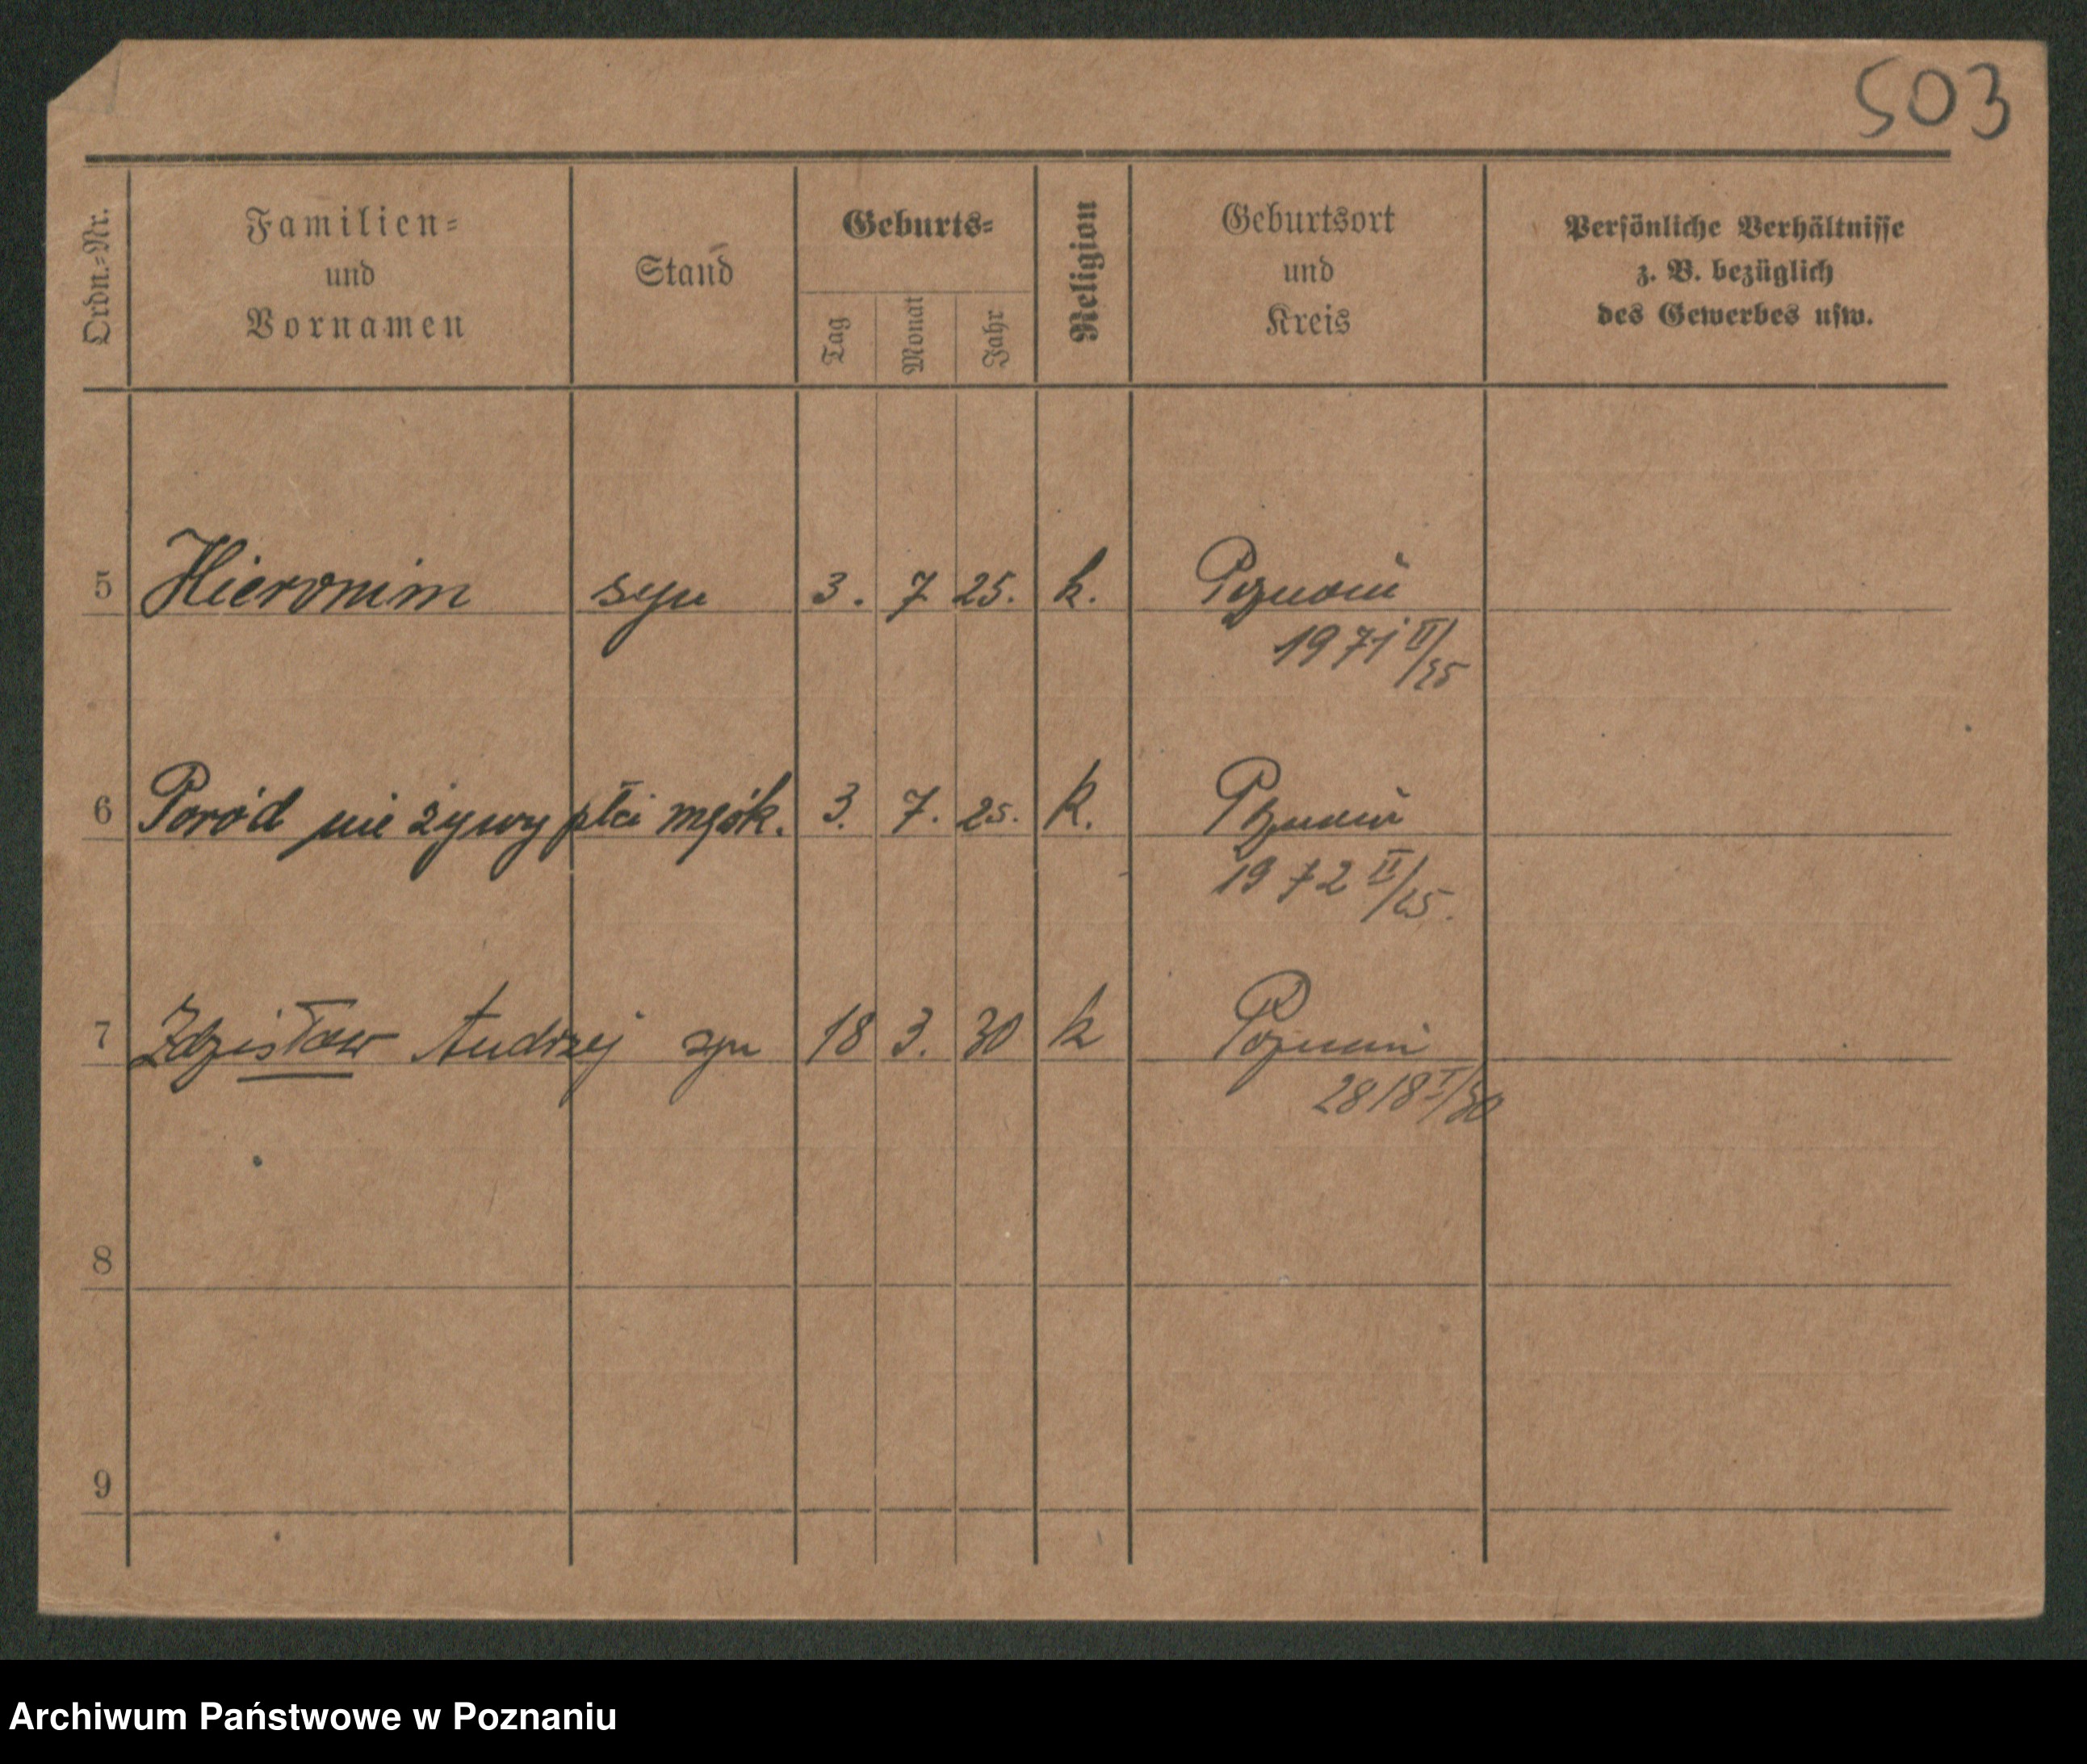 503
Ordn.-Nr.
Familien-
und
Vornamen
Stand
Geburts-
Tag
Monat
Jahr
Religion
Geburtsort
und
Kreis
Persönliche Verhältnisse
z. B. bezüglich
des Gewerbes usw.
5 Hieronim syn 3. 7 25. k. Poznań
1971 II/25
6 Poród nie żywy płci męsk. 3. 7. 25. k. Poznań
1972 II/25.
7 Zdzisław Andrzej syn 18 3. 30 k Poznań
2818 I/30
8
9
Archiwum Państwowe w Poznaniu